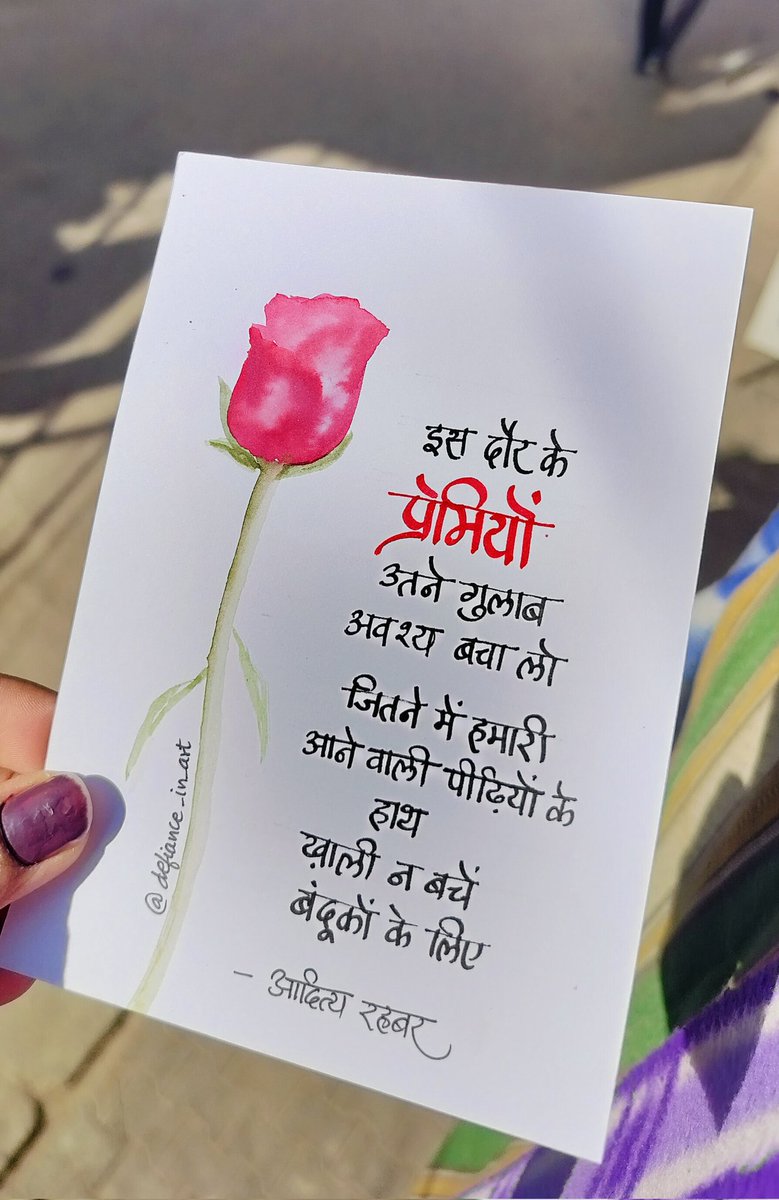 इस दौर के
प्रेमियों
उतने गुलाब
अवश्य बचा लो
जितने में हमारी
आने वाली पीढ़ियों के
हाथ
ख़ाली न बचें
बंदूकों के लिए
- आदित्य रहबर
@defiance_in_art